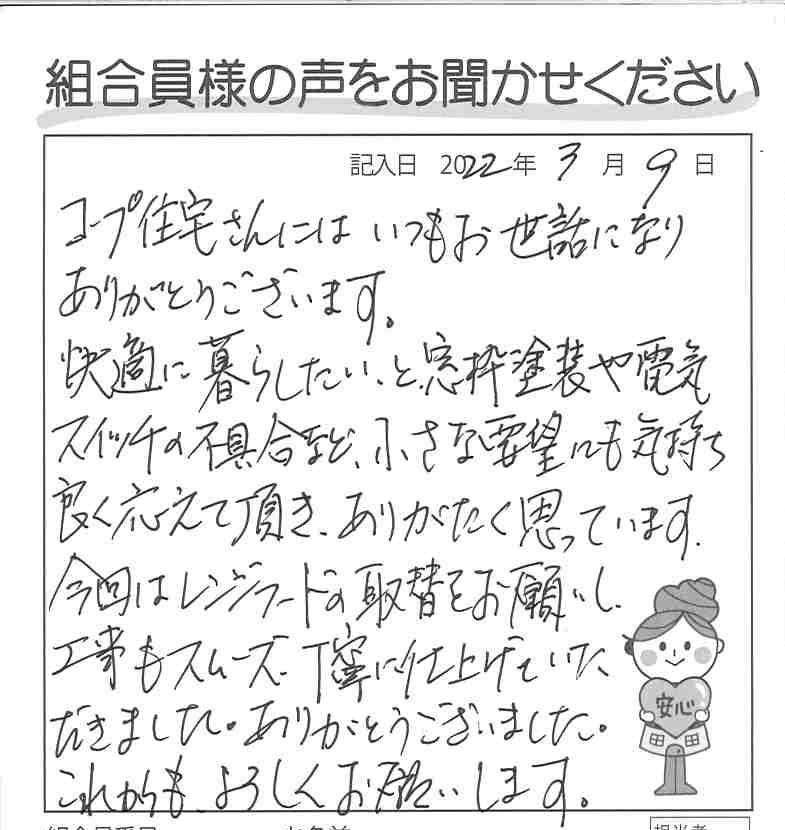 組合員様の声をお聞かせください
記入日 2022年 3月 9日
コープ住宅さんにはいつもお世話になり
ありがとうございます。
快適に暮らしたい、と、窓枠塗装や電気
スイッチの不具合など、小さな要望にも気持ち
良く応えて頂き、ありがたく思っています。
今回はレンジフードの取替をお願いし、
工事もスムーズ、丁寧に仕上げていた
だきました。ありがとうございました。
これからも、よろしくお願いします。
安心